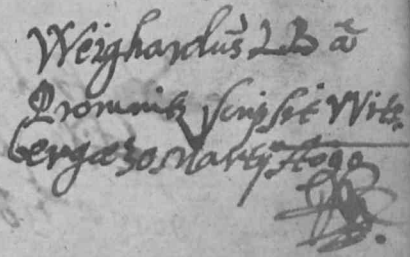 Weighardus L B ā
Promnitz scripsit Wite-
bergæ 30 Martij